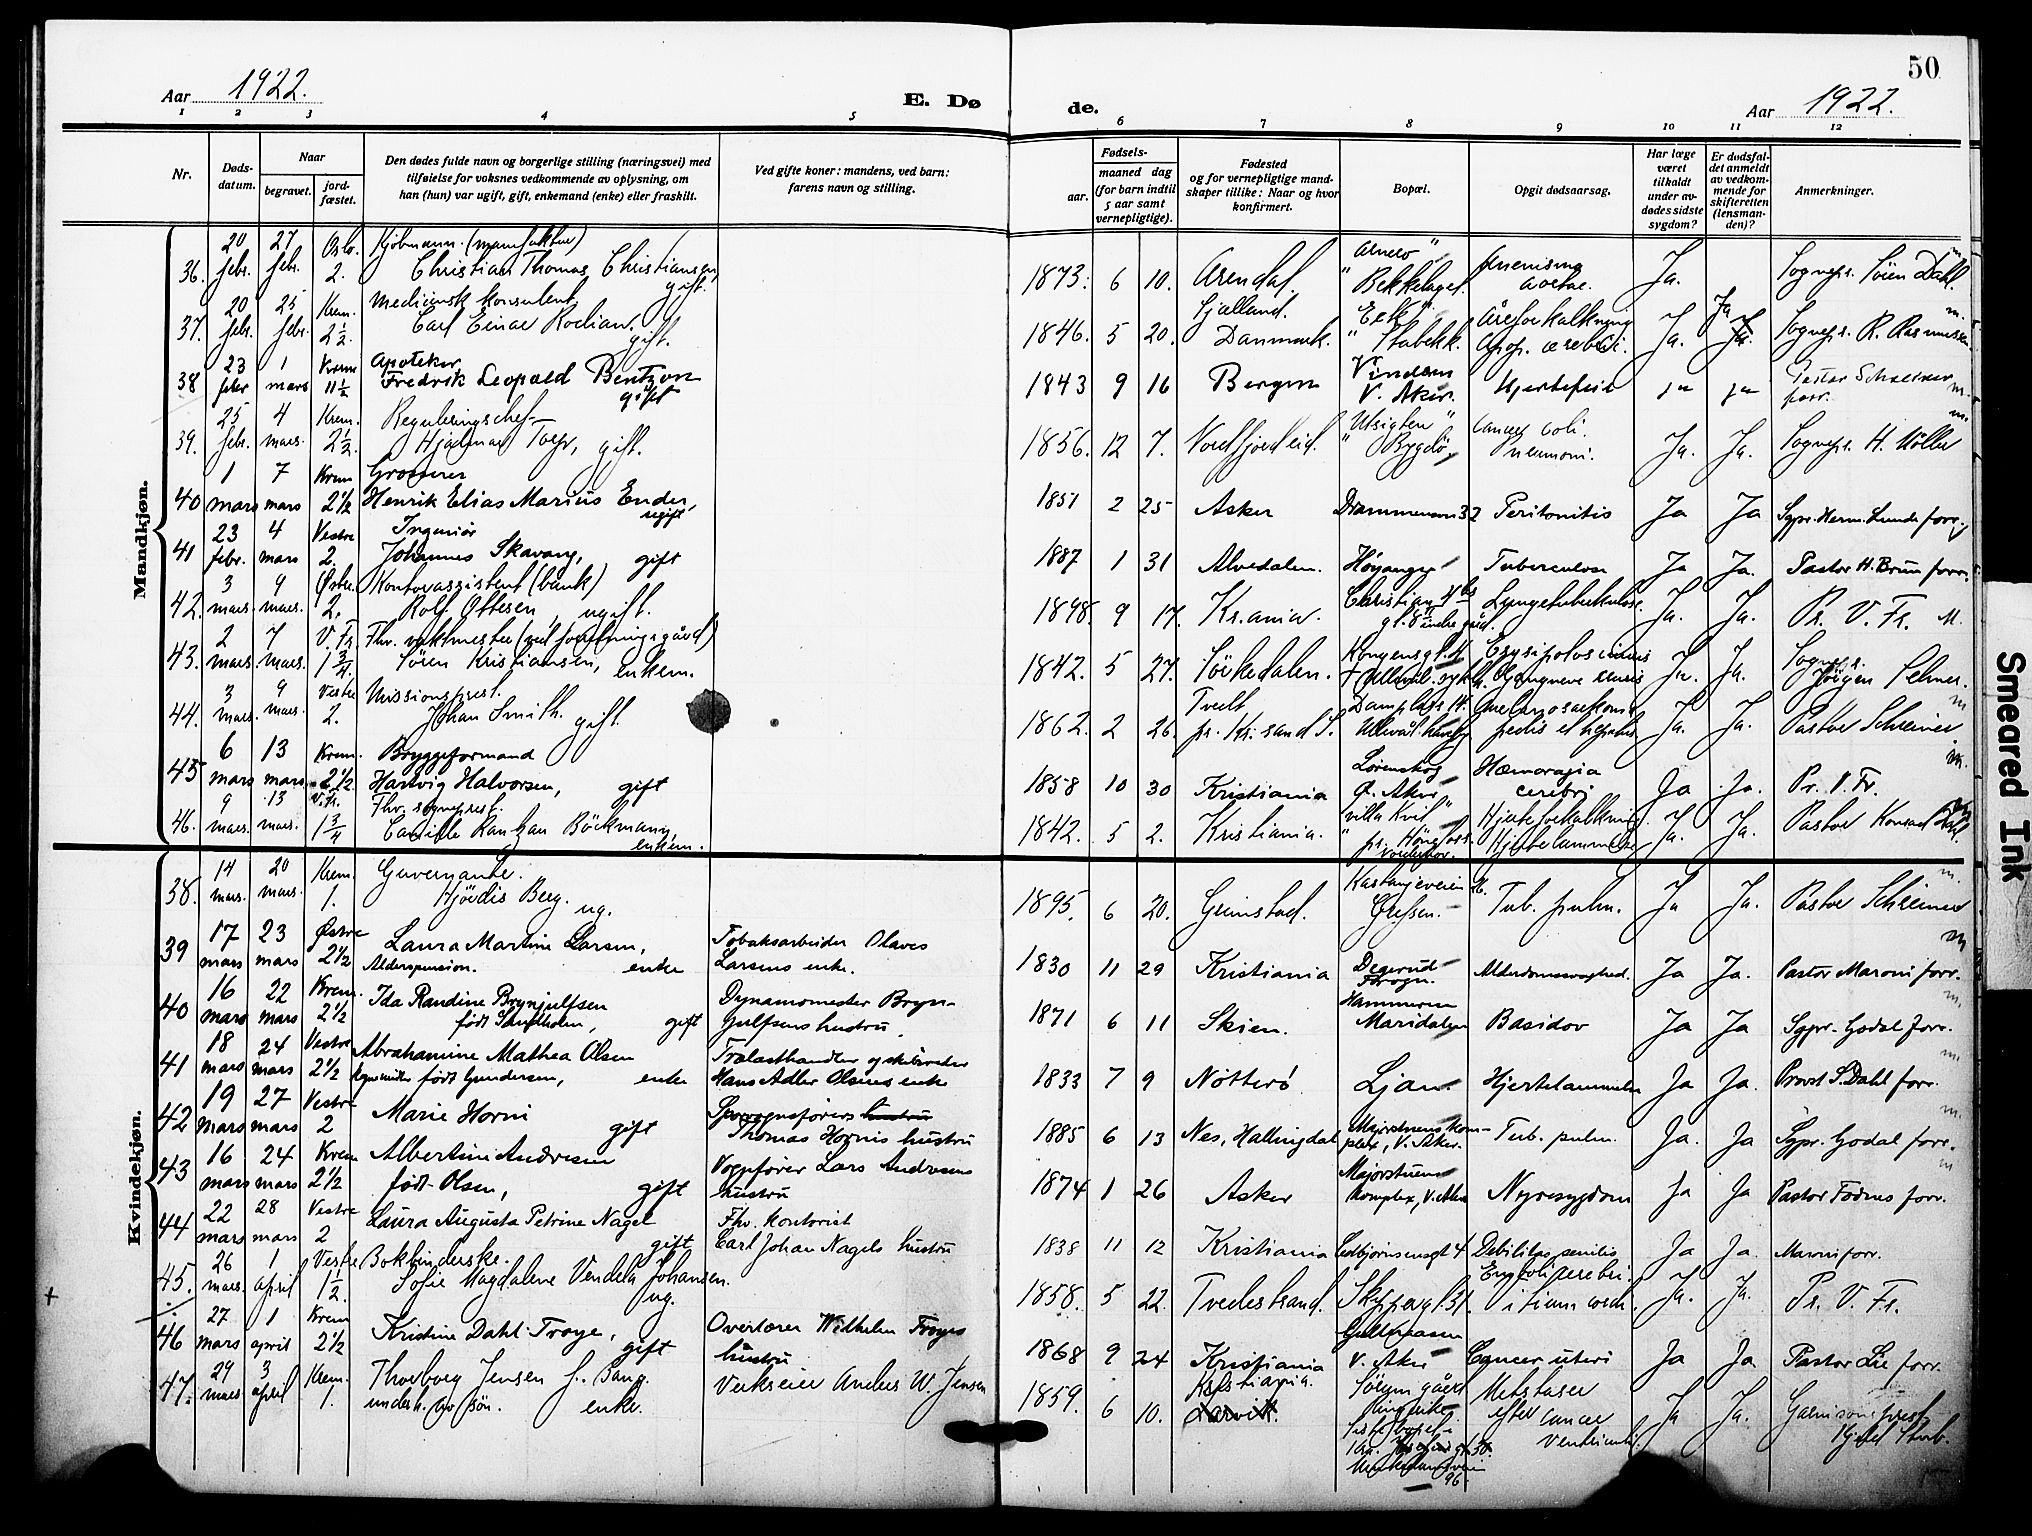 50
Aar 1922.
E. Dø
de.
Aar 1922.
1 2 3 4 5 6 7 8 9 10 11 12
Nr.
Døds-
datum.
Naar
begravet.
jord-
fæstet.
Den dødes fulde navn og borgerlige stilling (næringsvei) med
tilføielse for voksnes vedkommende av oplysning, om
han (hun) var ugift, gift, enkemand (enke) eller fraskilt.
Ved gifte koner: mandens, ved barn:
farens navn og stilling.
Fødsels-
aar.
maaned dag
(for barn indtil
5 aar samt
vernepligtige).
Fødested
og for vernepligtige mand-
skaper tillike: Naar og hvor
konfirmert.
Bopæl.
Opgit dødsaarsag.
Har læge
været
tilkaldt
under av-
dødes sidste
sygdom?
Er dødsfal-
det anmeldt
av vedkom-
mende for
skifteretten
(lensman-
den)?
Anmerkninger.
Mandkjøn.
36. 20 febr. 27 febr. Oslo 2. Kjøbmann. (manufaktur)
Christian Thomas Christiansen gift. 1873. 6 10. Arendal. Bekkelaget. aortae. Ja. Sognepr. Sören Dahl.
37. 20 febr. 25 febr. Krem. 2 1/2. Medicinsk konsulent
Carl Einar Rodian. gift. 1846. 5 20. Sjælland. Danmark. Stabekk. Åreforkalkning Ja. Ja Sognepr. R. Rasmussen
38 23 febr 1 mars Krem 11 1/2 Apoteker
Fredrik Leopold Bentzon gift 1843 9 16 Bergen V. Aker. Hjertefeil ja ja Pastor Schreiner forr.
39. 25 febr. 4 mars. Krem. 2 1/2. Reguleringschef
Hjalmar Torp, gift. 1856. 12 7. Nordfjordeid. Utsigten Bygdö, Cancer coli. Pneumoni. Ja. Ja. Sognepr. H. Möller
40 1 mars 7 mars Krem 2 1/2 Grosserer
Henrik Elias Marius Ender, ugift 1851 2 25 Asker Drammensvn 32 Peritonitis Ja Ja Sgpr. Herm. Lunde forr.
41 23 febr. 4 mars Vestre 2. Ingeniør
Johannes Skavang, gift 1887 1 31 Alvedalen. Höyanger Tuberculose Ja Ja. Pastor H. Brun forr.
42. 3 mars. 9 mars. Østre 2. Kontorassistent (bank)
Rolf Ottesen, ugift. 1898. 9 17. Kr.ania. Lungetuberkulose. Ja. Ja. Pr. V. Fr. M.
43. 2 mars. 7 mars. V. Fr. 1 3/4. Fhv. vaktmester
Sören Kristiansen, enkem. 1842. 5 27. Sörkedalen. Ja. Ja. Sognepr. Jörgen Selmer.
44. 3 mars. 9 mars. Vestre 2. Missionsprest.
Johan Smith. gift. 1862. 2 26. Tveit pr. Kr.sand S. Ja. Ja. Pastor Schreiner
45 6 mars 13 mars Krem. 2 1/2 Bryggeformand
Hartvig Halvorsen, gift 1858 10 30 Kristiania Lørenskog Ø. Aker Hæmoragia cerebri Ja Ja. Pr. V. Fr.
46. 9 mars. 13 mars. V. Fr. 1 3/4 Fhv. sogneprest.
Camille Rantzau Böckmann, enkem. 1842. 5 2. Kristiania. villa Kvil pr. Hönefoss. Norderhov. Hjertelammelse Ja. Ja. Pastor Konrad Dahl.
Kvindekjøn.
38. 14 mars. 20 mars. Krem. 1. Guvernante.
Hjördis Berg. ug. 1895. 6 20. Grimstad. Kastanjeveien Grefsen. Tub. pulm. Ja Ja. Pastor Schreiner
39 17 mars 23 mars Østre 2 1/2 Laura Martine Larsen,
Alderspension. enke Tobaksarbeider Olaves Larsens enke. 1830 11 29 Kristiania Degerud Frogn. Alderdomssvaghed. Ja Ja. Pastor Maroni forr.
40 16 mars 22 mars Krem. 2 1/2 Ida Randine Brynjulfsen
født Sandholm, gift Dynamomester Bryn-
julfsens hustru. 1871 6 11 Skien. Hammeren Maridalen Basidov Ja Ja Sgpr. Godal forr.
41 18 mars 24 mars Vestre 2 1/2 Abrahamine Mathea Olsen
født Gundersen, enke Trælasthandler og skibsreder
Hans Adler Olsens enke 1833 7 9 Nötterö Ljan. Hjertelammelse Ja Ja. Provst S. Dahl forr.
42 19 mars 27 mars Vestre 2 Marie Horni gift Sporvognsförer hustru
Thomas Hornis hustru 1885 6 13 Nes, Hallingdal Majorstuens kom-
plex, V. Aker. Tub. pulm. Ja. Ja Sgpr. Godal forr.
43 16 mars 24 mars Krem 2 1/2 Albertine Andresen
født Olsen, gift Vognfører Lars Andresens
hustru 1874 1 26 Asker Majorstuens
komplex, V. Aker Nyresygdom Ja Ja Pastor Fodnes forr.
44 22 mars 28 mars Vestre 2 Laura Augusta Petrine Nagel gift Fhv. kontorist
Carl Johan Nagels hustru 1838 11 12 Kristiania Debilitas senilis Ja Ja. Maroni forr.
45. 26 mars. 1 april Vestre 1 1/2. Bokbinderske.
Sofie Magdalene Vendela Johansen. ug. 1858. 5 22. Tvedestrand. Skippergt. 31. Emboli cerebri. Vitium cordis. Ja. Ja. Pr. V. Fr.
46 27 mars 1 april Krem 2 1/2 Kristine Dahl Troye, gift Overlærer Wilhelm Troyes
hustru 1868 9 24 Kristiania V. Aker Cancer uteri Ja Ja Pastor Lie forr.
47. 29 mars 3 april Krem. 1. Thorborg Jensen f. Bang.
underh. av sön. enke. Verkseier Anders W. Jensen 1859. 6 10. Kristiania. Larvik. Metstaser efter cancer ventriculi. Ja Ja. Garnisonsprest Kjeld Stub.
Smeared Ink